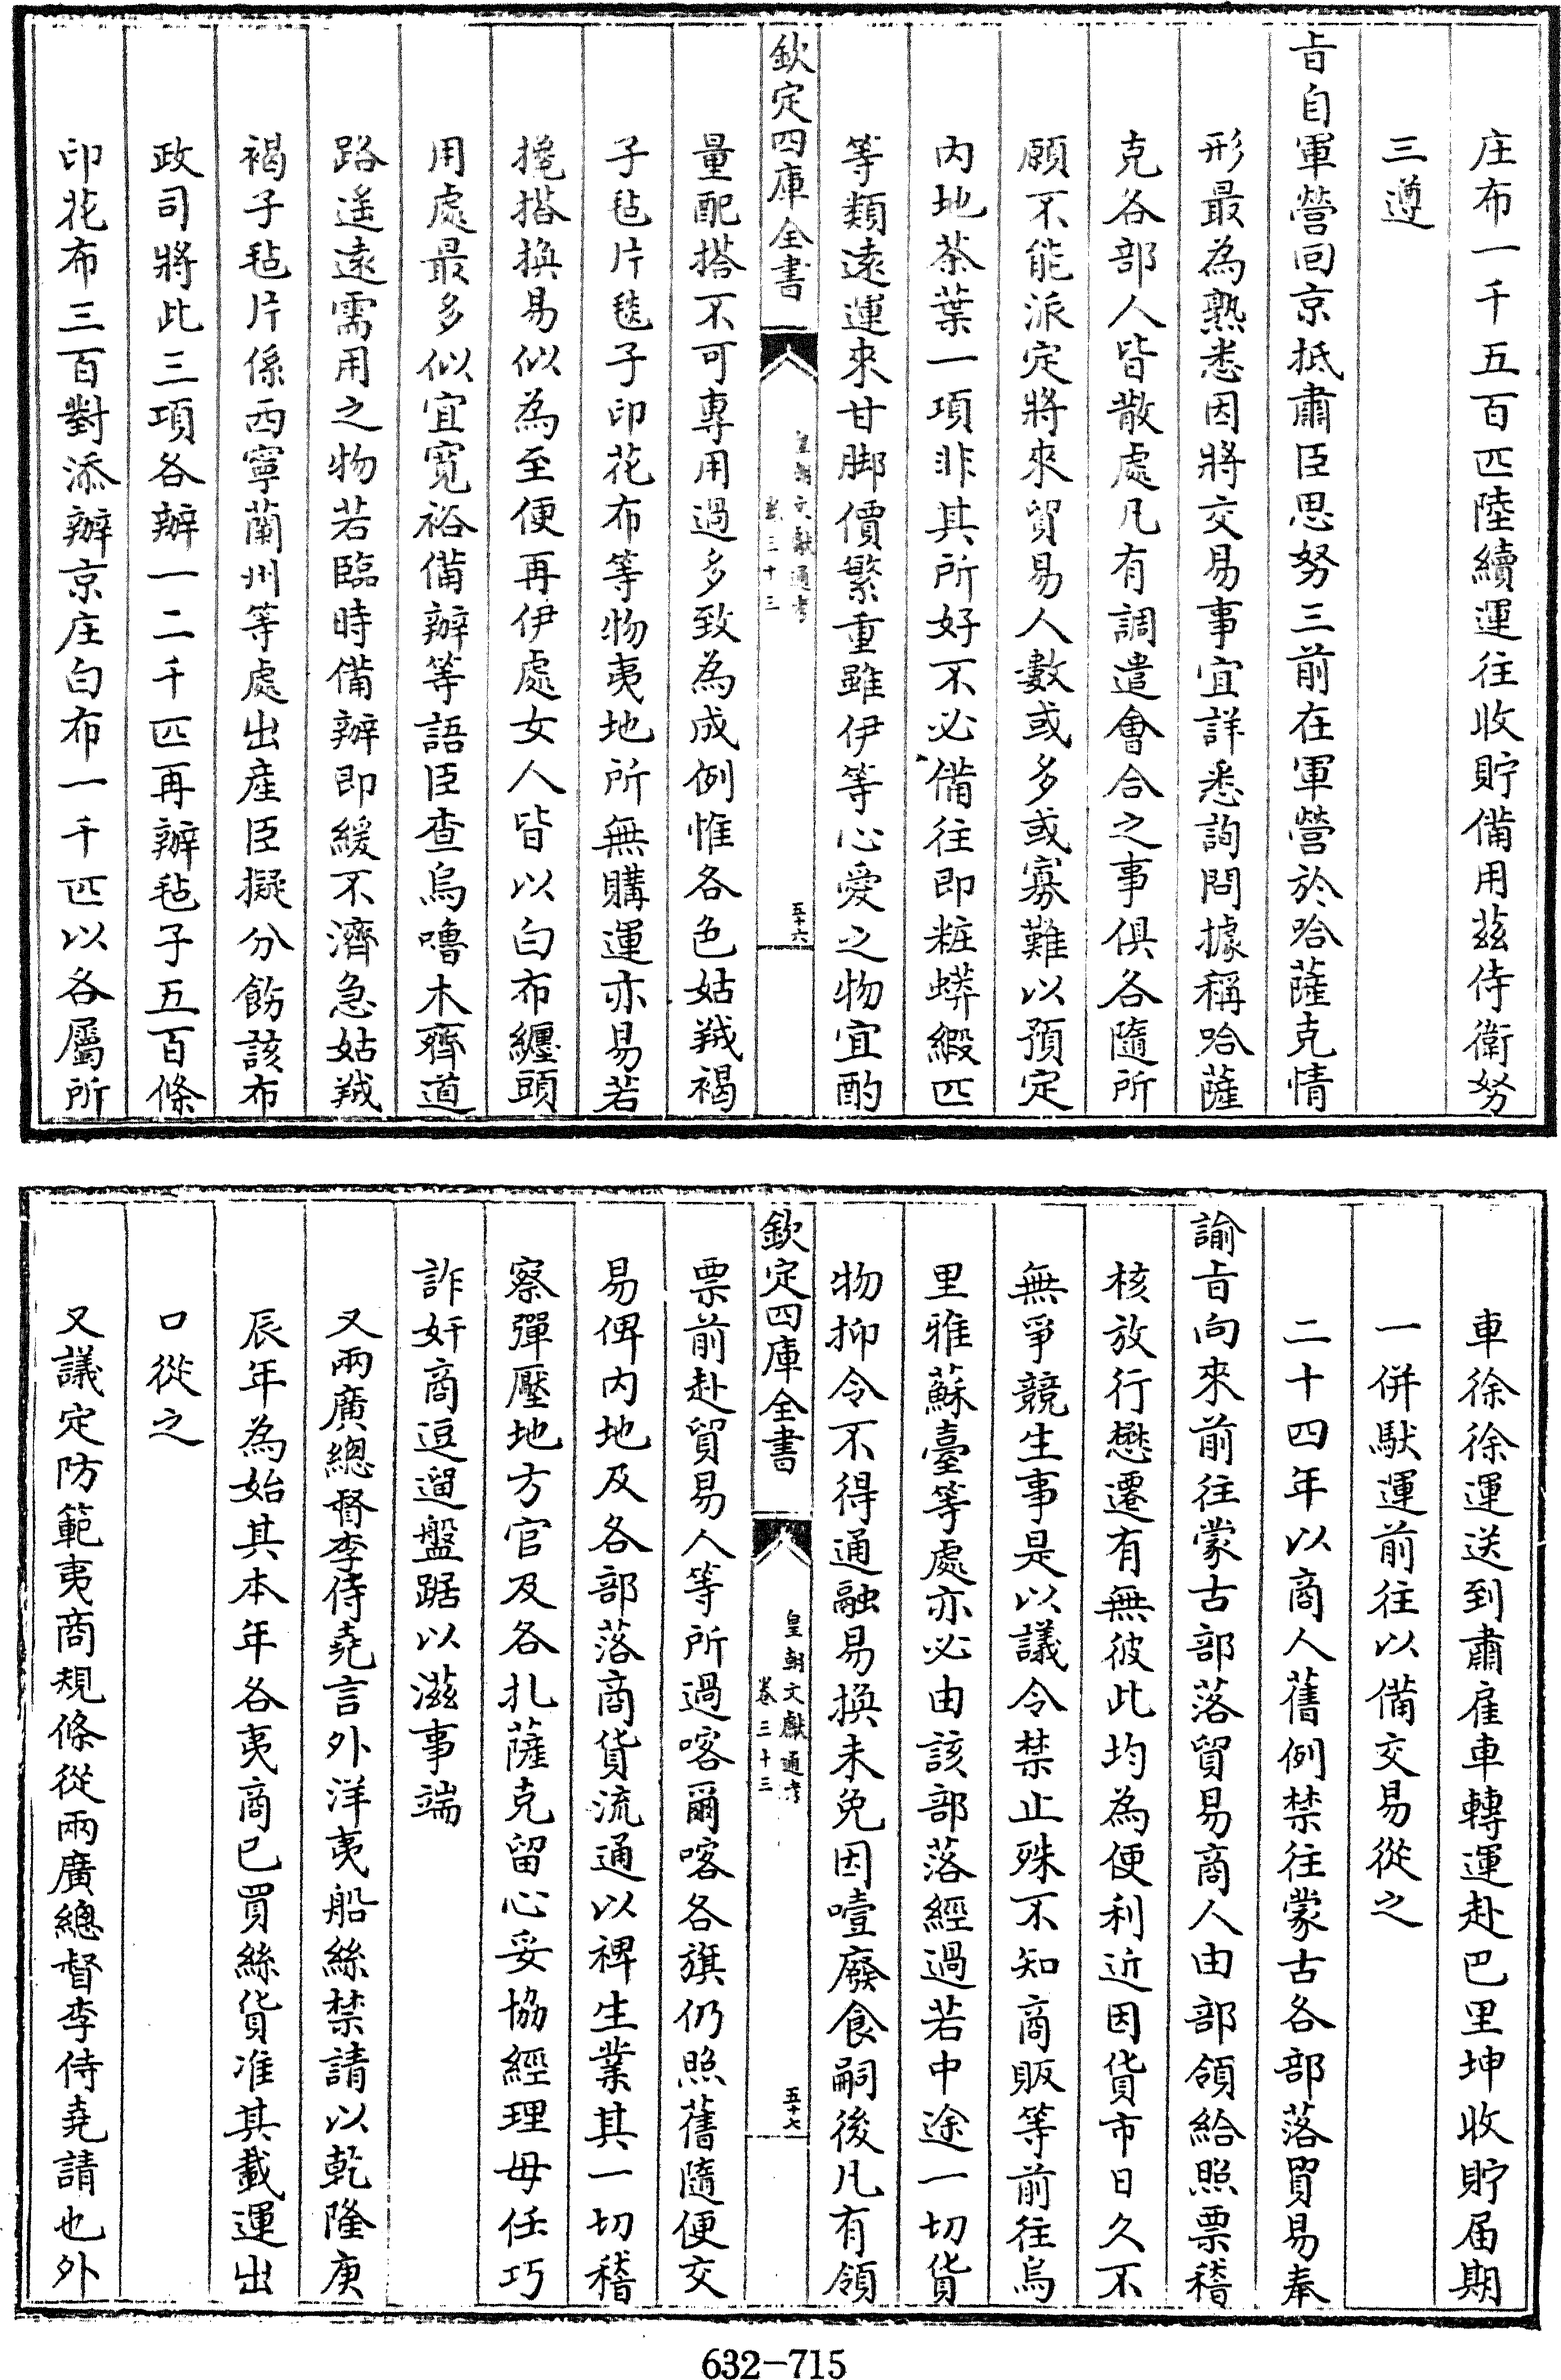 庄布一千五百匹陸續運往收貯備用茲侍衛努
三遵
㫖自軍營回京抵肅臣思努三前在軍營於哈薩克情
形最為熟悉因將交易事宜詳悉詢問據稱哈薩
克各部人皆散處凡有調遣會合之事俱各隨所
願不能派定將來貿易人數或多或寡難以預定
內地茶葉一項非其所好不必備往即粧蟒緞匹
等類遠運來甘脚價繁重雖伊等心愛之物宜酌
欽定四庫全書
皇朝文獻通考
卷三十三
五十六
量配搭不可專用過多致為成例惟各色姑羢褐
子毡片毯子印花布等物夷地所無購運亦易若
搀搭換易似為至便再伊處女人皆以白布纏頭
用處最多似宜寛裕備辦等語臣查烏嚕木齊道
路遙遠需用之物若臨時備辦即緩不濟急姑羢
褐子毡片係西寧蘭州等處出產臣擬分飭該布
政司將此三項各辦一二千匹再辦毡子五百條
印花布三百對添辦京庄白布一千匹以各屬所
車徐徐運送到肅雇車轉運赴巴里坤收貯屆期
一併馱運前往以備交易從之
二十四年以商人舊例禁往蒙古各部落貿易奉
諭㫖向來前往蒙古部落貿易商人由部領給照票稽
核放行懋遷有無彼此均為便利近因貨市日久不
無爭競生事是以議令禁止殊不知商販等前往烏
里雅蘇臺等處亦必由該部落經過若中途一切貨
物抑令不得通融易換未免因噎廢食嗣後凡有領
欽定四庫全書
皇朝文獻通考
卷三十三
五十七
票前赴貿易人等所過喀爾喀各旗仍照舊隨便交
易俾內地及各部落商貨流通以裨生業其一切稽
察彈壓地方官及各扎薩克留心妥協經理毋任巧
詐奸商逗遛盤踞以滋事端
又兩廣總督李侍堯言外洋夷船絲禁請以乾隆庚
辰年為始其本年各夷商已買絲貨准其載運出
口從之
又議定防範夷商規條從兩廣總督李侍堯請也外
632-715